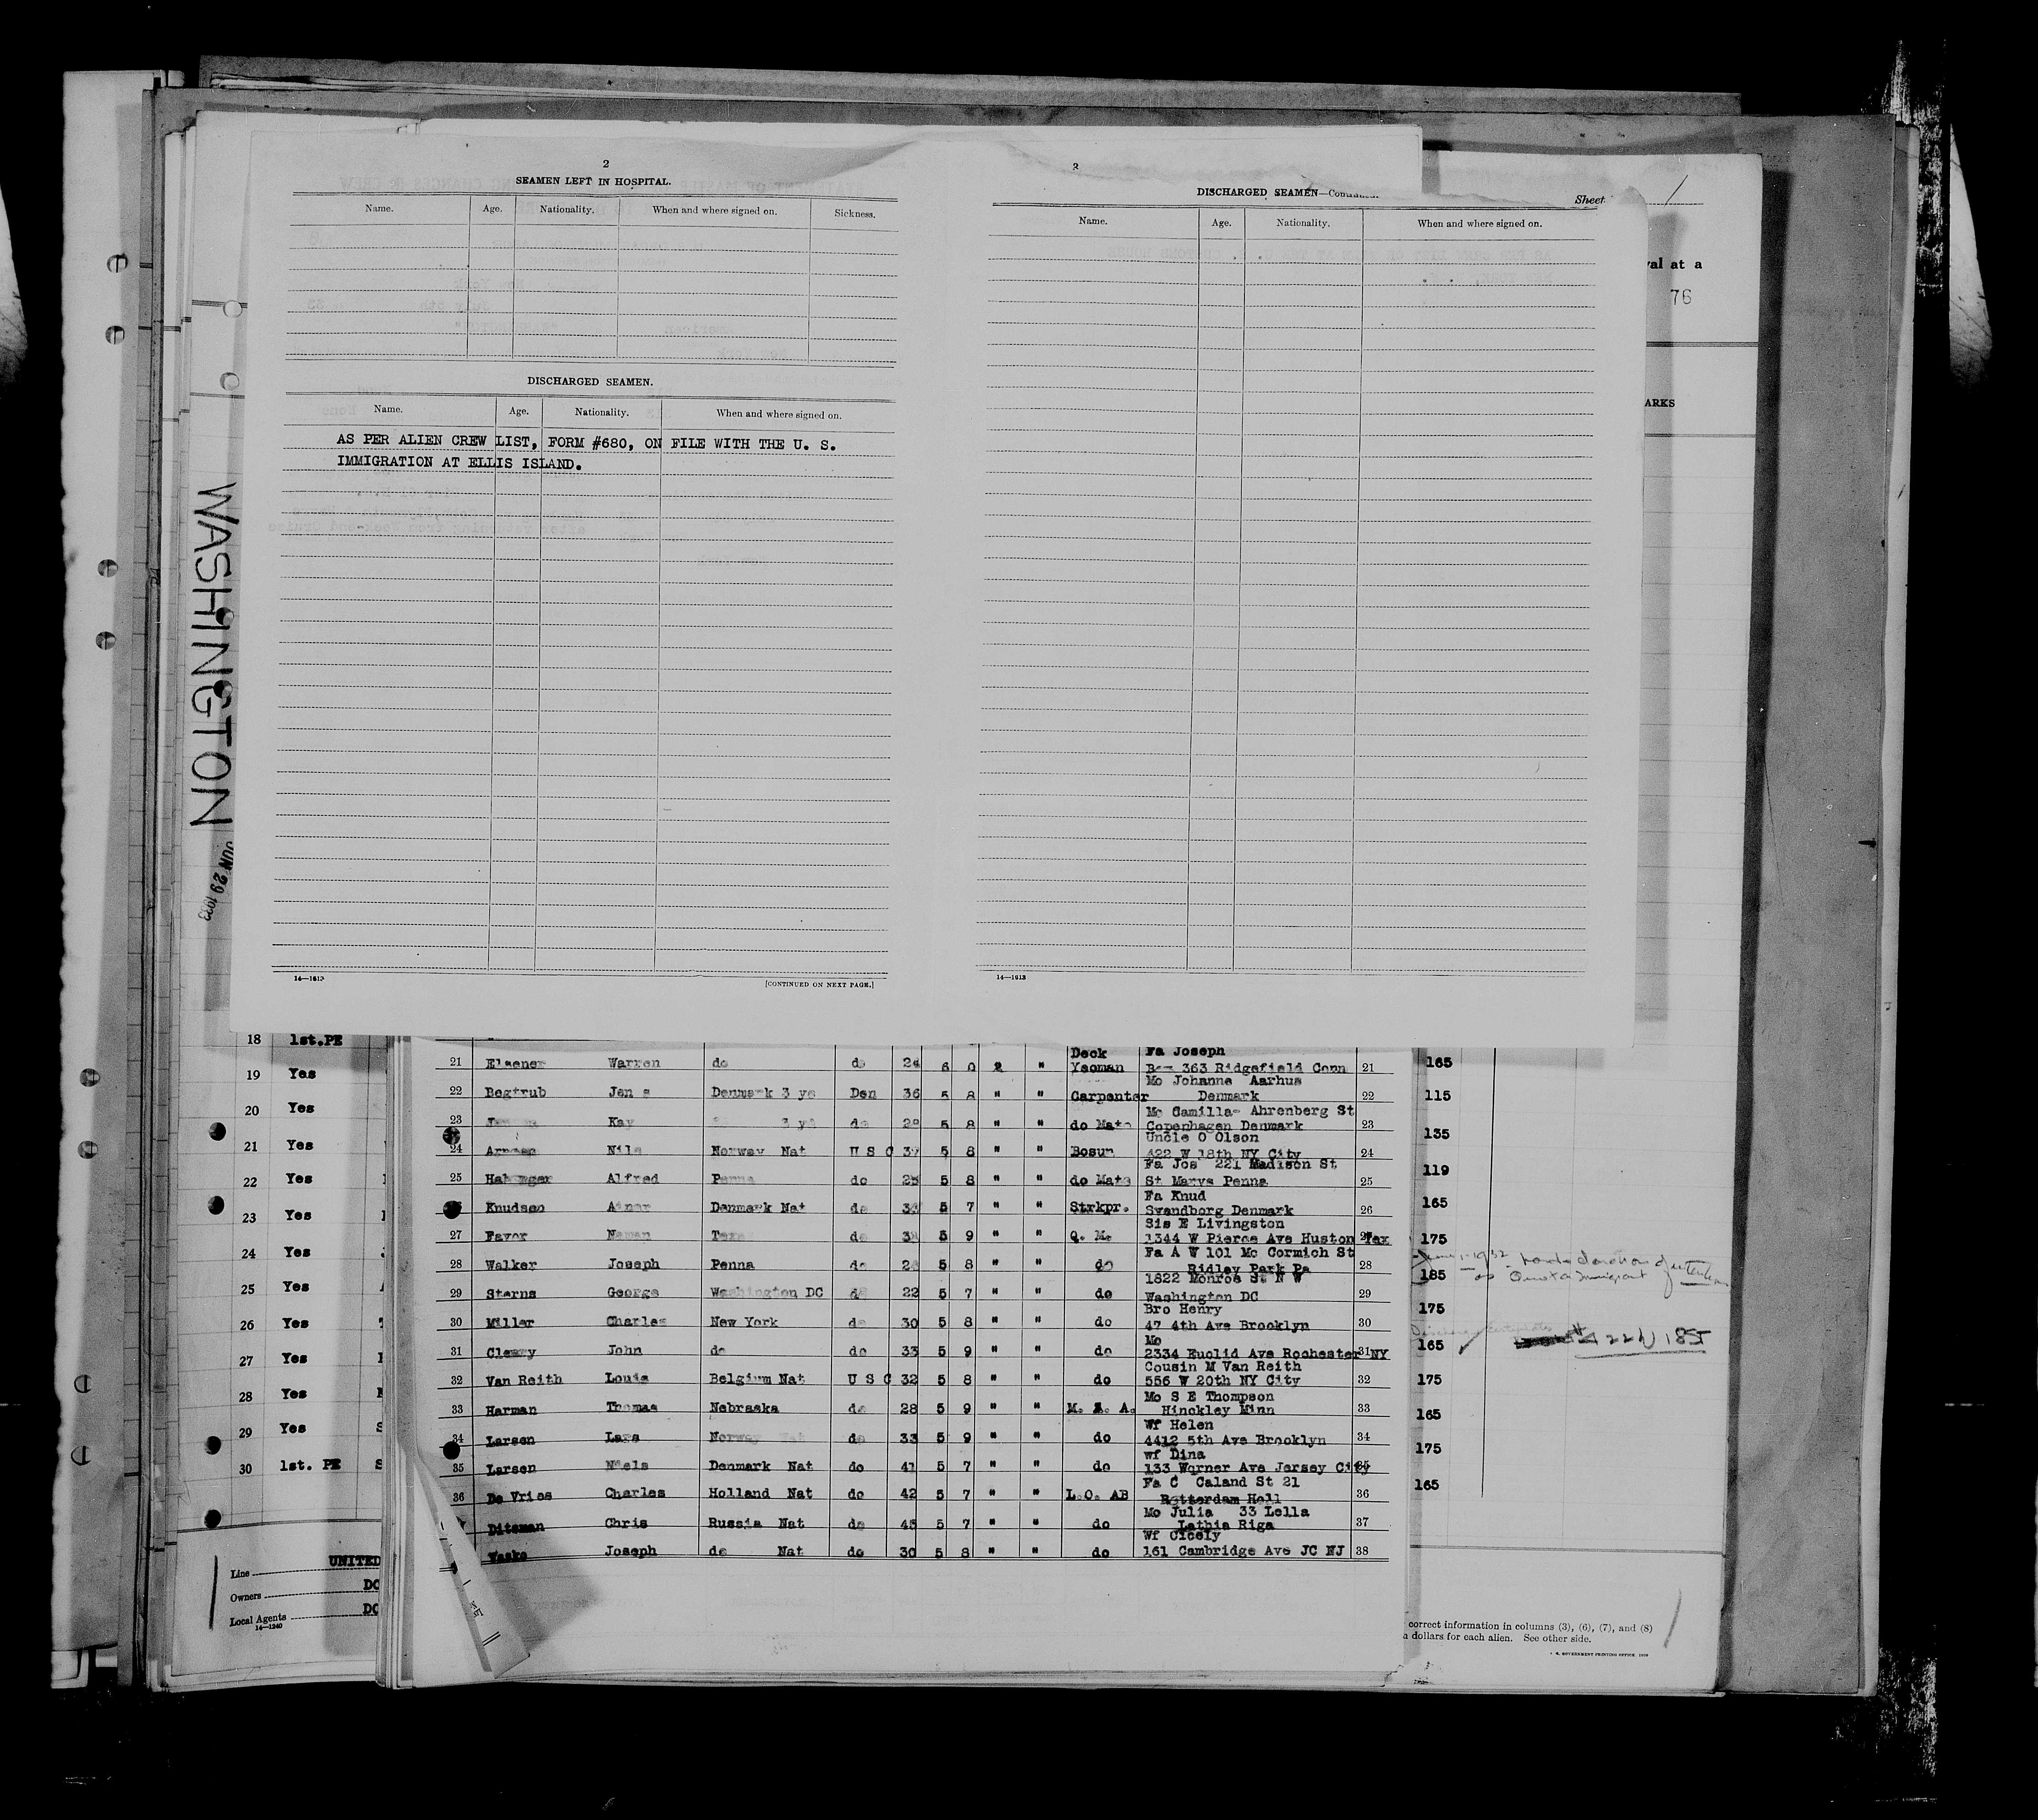 2
SEAMEN LEFT IN HOSPITAL.
Name. Age. Nationality. When and where signed on. Sickness.
DISCHARGED SEAMEN.
Name. Age. Nationality. When and where signed on.
AS PER ALIEN CREW LIST, FORM #680, ON FILE WITH THE U. S.
IMMIGRATION AT ELLIS ISLAND.
14—1613
[CONTINUED ON NEXT PAGE.]
3
DISCHARGED SEAMEN—Continued.
Name. Age. Nationality. When and where signed on.
14—1613
Sheet
val at a
76
ARKS
WASHINGTON
JUN 29
18 1st.PE
19 Yes
20 Yes
21 Yes
22 Yes
23 Yes
24 Yes
25 Yes
26 Yes
27 Yes
28 Yes
29 Yes
30 1st. PE
Line UNITED
Owners DO
Local Agents DO
14—1240
Deck Fa Joseph
21 Warren do do 24 6 0 " Yeoman 363 Ridgefield Conn 21
Mo Johanne Aarhus
22 Begtrub Jens Denmark 3 ys Den 36 5 8 " " Carpenter Denmark 22
Mo Camilla Ahrenberg St
23 Kay 3 do 28 5 8 " " do Mate Copenhagen Denmark 23
Uncle O Olson
24 Nils Norway Nat U S C 5 8 " " Bosun 422 W 18th NY City 24
Fa Jos 221 Madison St
25 Alfred Penna do 5 8 " " do Mate St Marys Penna 25
Fa Knud
Knudsen Denmark Nat do 5 7 " " Strkpr. Svendborg Denmark 26
Sis E Livingston
27 Favor Texas do 5 9 " " Q. M. 1344 W Pierce Ave Huston Tex
Fa A W 101 Mc Cormich St
28 Walker Joseph Penna do 5 8 " " do Ridley Park Pa 28
1822 Monroe St N W
29 Sterns George Washington DC do 22 5 7 " " do Washington DC 29
Bro Henry
30 Miller Charles New York do 30 5 8 " " do 47 4th Ave Brooklyn 30
Mo
31 Cleary John do do 33 5 9 " " do 2334 Euclid Ave Rochester NY 31
Cousin M Van Reith
32 Van Reith Louis Belgium Nat U S C 32 5 8 " " do 556 W 20th NY City 32
Mo S E Thompson
33 Harman Thomas Nebraska do 28 5 9 " " M. A. A. Hinckley Minn 33
Wf Helen
34 Larsen Lars Norway Nat do 33 5 9 " " do 4412 5th Ave Brooklyn 34
wf Dina
35 Larsen Niels Denmark Nat do 41 5 7 " " do 133 Worner Ave Jersey City 35
Fa C Caland St 21
36 De Vries Charles Holland Nat do 42 5 7 " " L.O. AB Rotterdam Holl 36
Mo Julia 33 Lella
Ditsman Chris Russia Nat do 45 5 7 " " do Lathia Riga 37
Wf Cicely
Joseph do Nat do 30 5 8 " " do 161 Cambridge Ave JC NJ 38
165
115
135
119
165
175
185
175
165
175
165
175
165
correct information in columns (3), (6), (7), and (8)
dollars for each alien. See other side.
GOVERNMENT PRINTING OFFICE